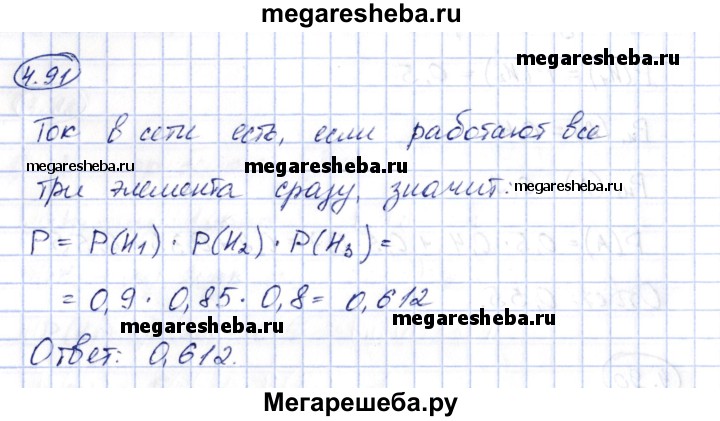 megaresheba.ru
4.91
megaresheba.ru
Ток в сети есть, если работают все
megaresheba.ru megaresheba.ru megaresheba.ru
три элемента сразу, значит:
P = P(H₁) · P(H₂) · P(H₃) =
= 0,9 · 0,85 · 0,8 = 0,612
megaresheba.ru megaresheba.ru
Ответ: 0,612.
Мегарешеба.ру